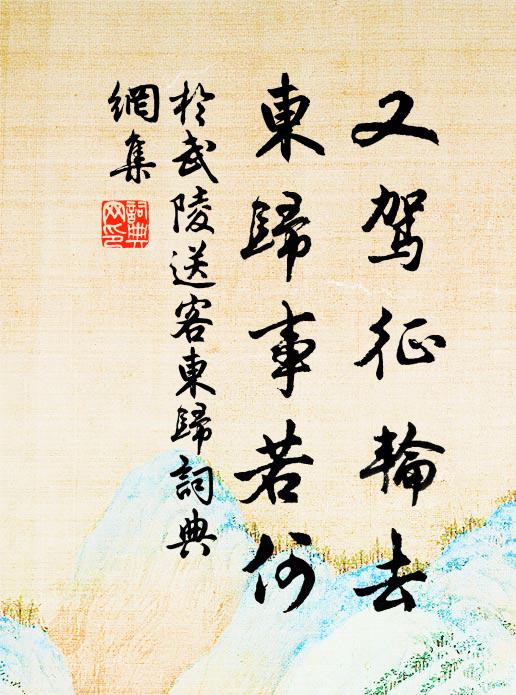 又駕征輪去
東歸事若何
於武陵送客東歸詞典
網集
詞典
网印